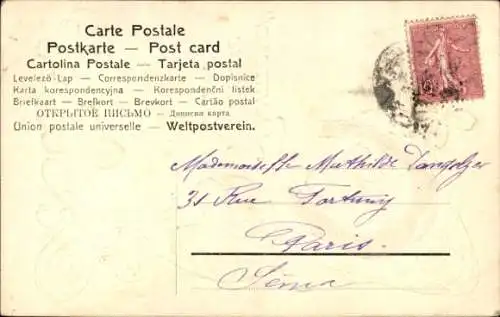 Carte Postale
Postkarte — Post card
Cartolina Postale — Tarjeta postal
Levelező-Lap — Correspondenzkarte — Dopisnice
Karta korespondencyjna — Korespondenční listek
Briefkaart — Brefkort — Brevkort — Cartão postal
ОТКРЫТОЕ ПИСЬМО — Дописна карта
Union postale universelle — Weltpostverein.
Mademoiselle Mathilde
31 Rue Fortuny
Paris.